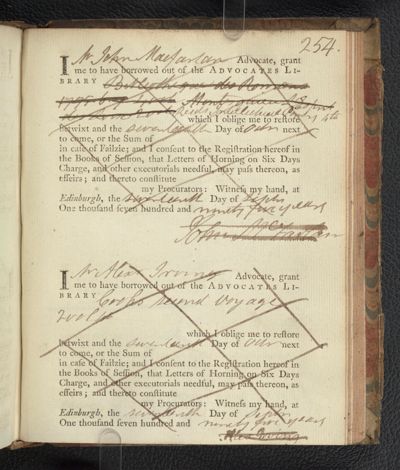 254.
I Mr John Macfarlan Advocate, grant
me to have borrowed out of the ADVOCATES LI-
BRARY Bibliotheque des Romans
which I oblige me to restore
betwixt and the seventeenth Day of Janr next
to come, or the Sum of
in case of Failzie; and I consent to the Registration hereof in
the Books of Session, that Letters of Horning on Six Days
Charge, and other executorials needful, may pass thereon, as
effeirs; and thereto constitute
my Procurators: Witness my hand, at
Edinburgh, the seventeenth Day of Septr
One thousand seven hundred and ninety five years
John Macfarlan
I Mr Alexr Irving Advocate, grant
me to have borrowed out of the ADVOCATES LI-
BRARY Cooks second Voyage
2 vols
which I oblige me to restore
betwixt and the seventeenth Day of Janr next
to come, or the Sum of
in case of Failzie; and I consent to the Registration hereof in
the Books of Session, that Letters of Horning on Six Days
Charge, and other executorials needful, may pass thereon, as
effeirs; and thereto constitute
my Procurators: Witness my hand, at
Edinburgh, the seventeenth Day of Septr
One thousand seven hundred and ninety five years
Alex Irving